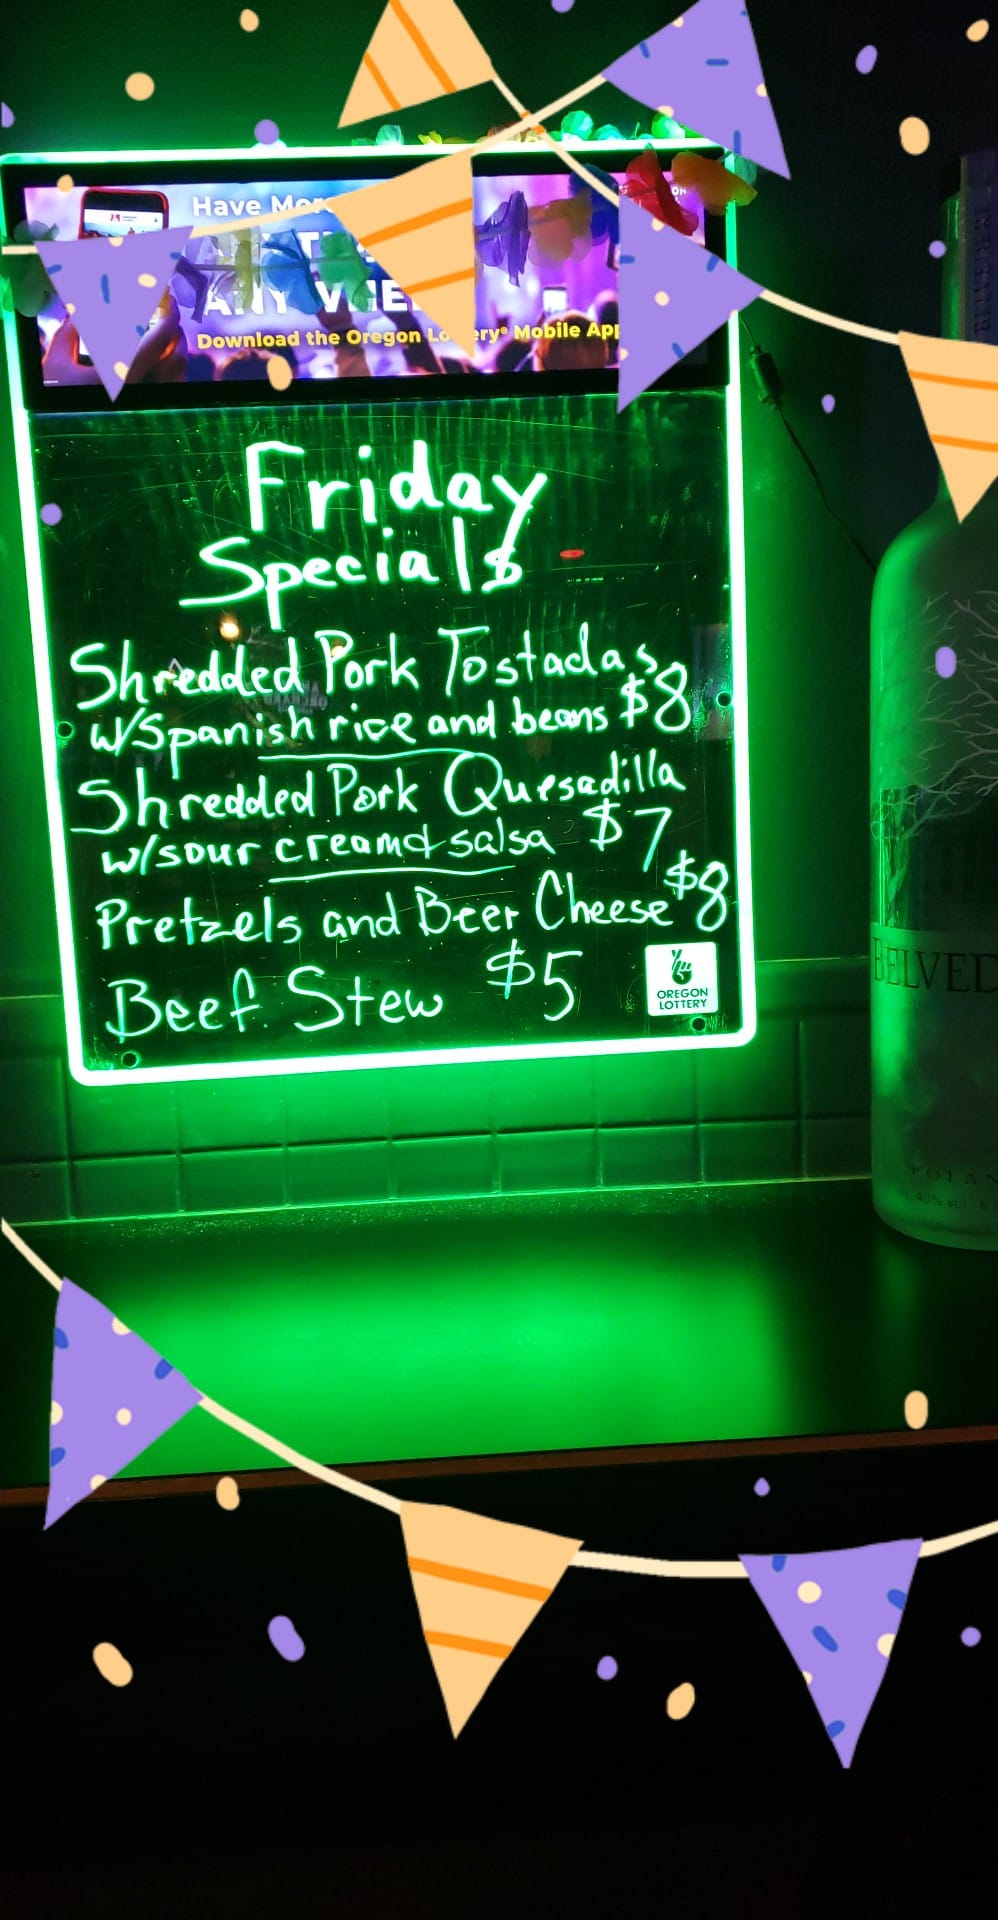 Have More
ANY
Download the Oregon Lottery® Mobile App
Friday
Specials
Shredded Pork Tostadas
w/Spanish rice and beans $8
Shredded Pork Quesadilla
w/sour cream & salsa $7
Pretzels and Beer Cheese $8
Beef Stew $5
OREGON
LOTTERY
BELVED
POLAN
40% vol